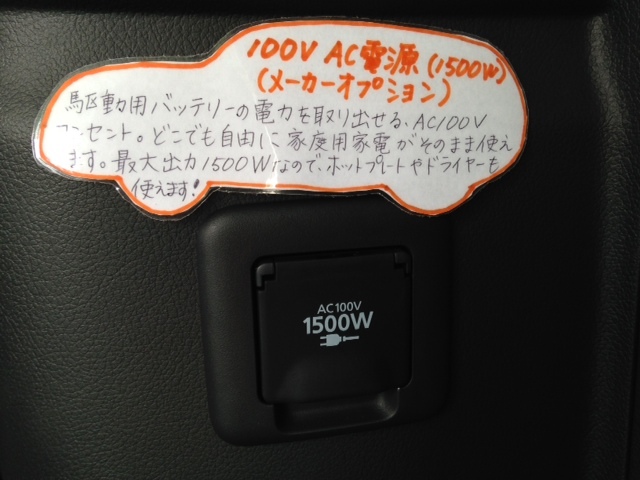 100V AC電源(1500W)
(メーカーオプション)
駆動用バッテリーの電力を取り出せる、AC100V
コンセント。どこでも自由に家庭用家電がそのまま使え
ます。最大出力1500Wなので、ホットプレートやドライヤーも
使えます!
AC100V
1500W